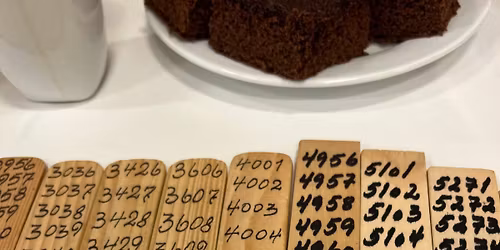 956
957
958
59
3036
3037
3038
3039
3426
3427
3428
3429
3606
3607
3608
4001
4002
4003
4004
4956
4957
4958
4959
5101
5102
5103
5104
5271
5272
5273